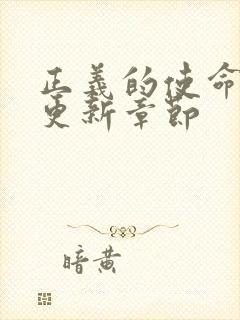 正義的使命
更新章節
暗黄